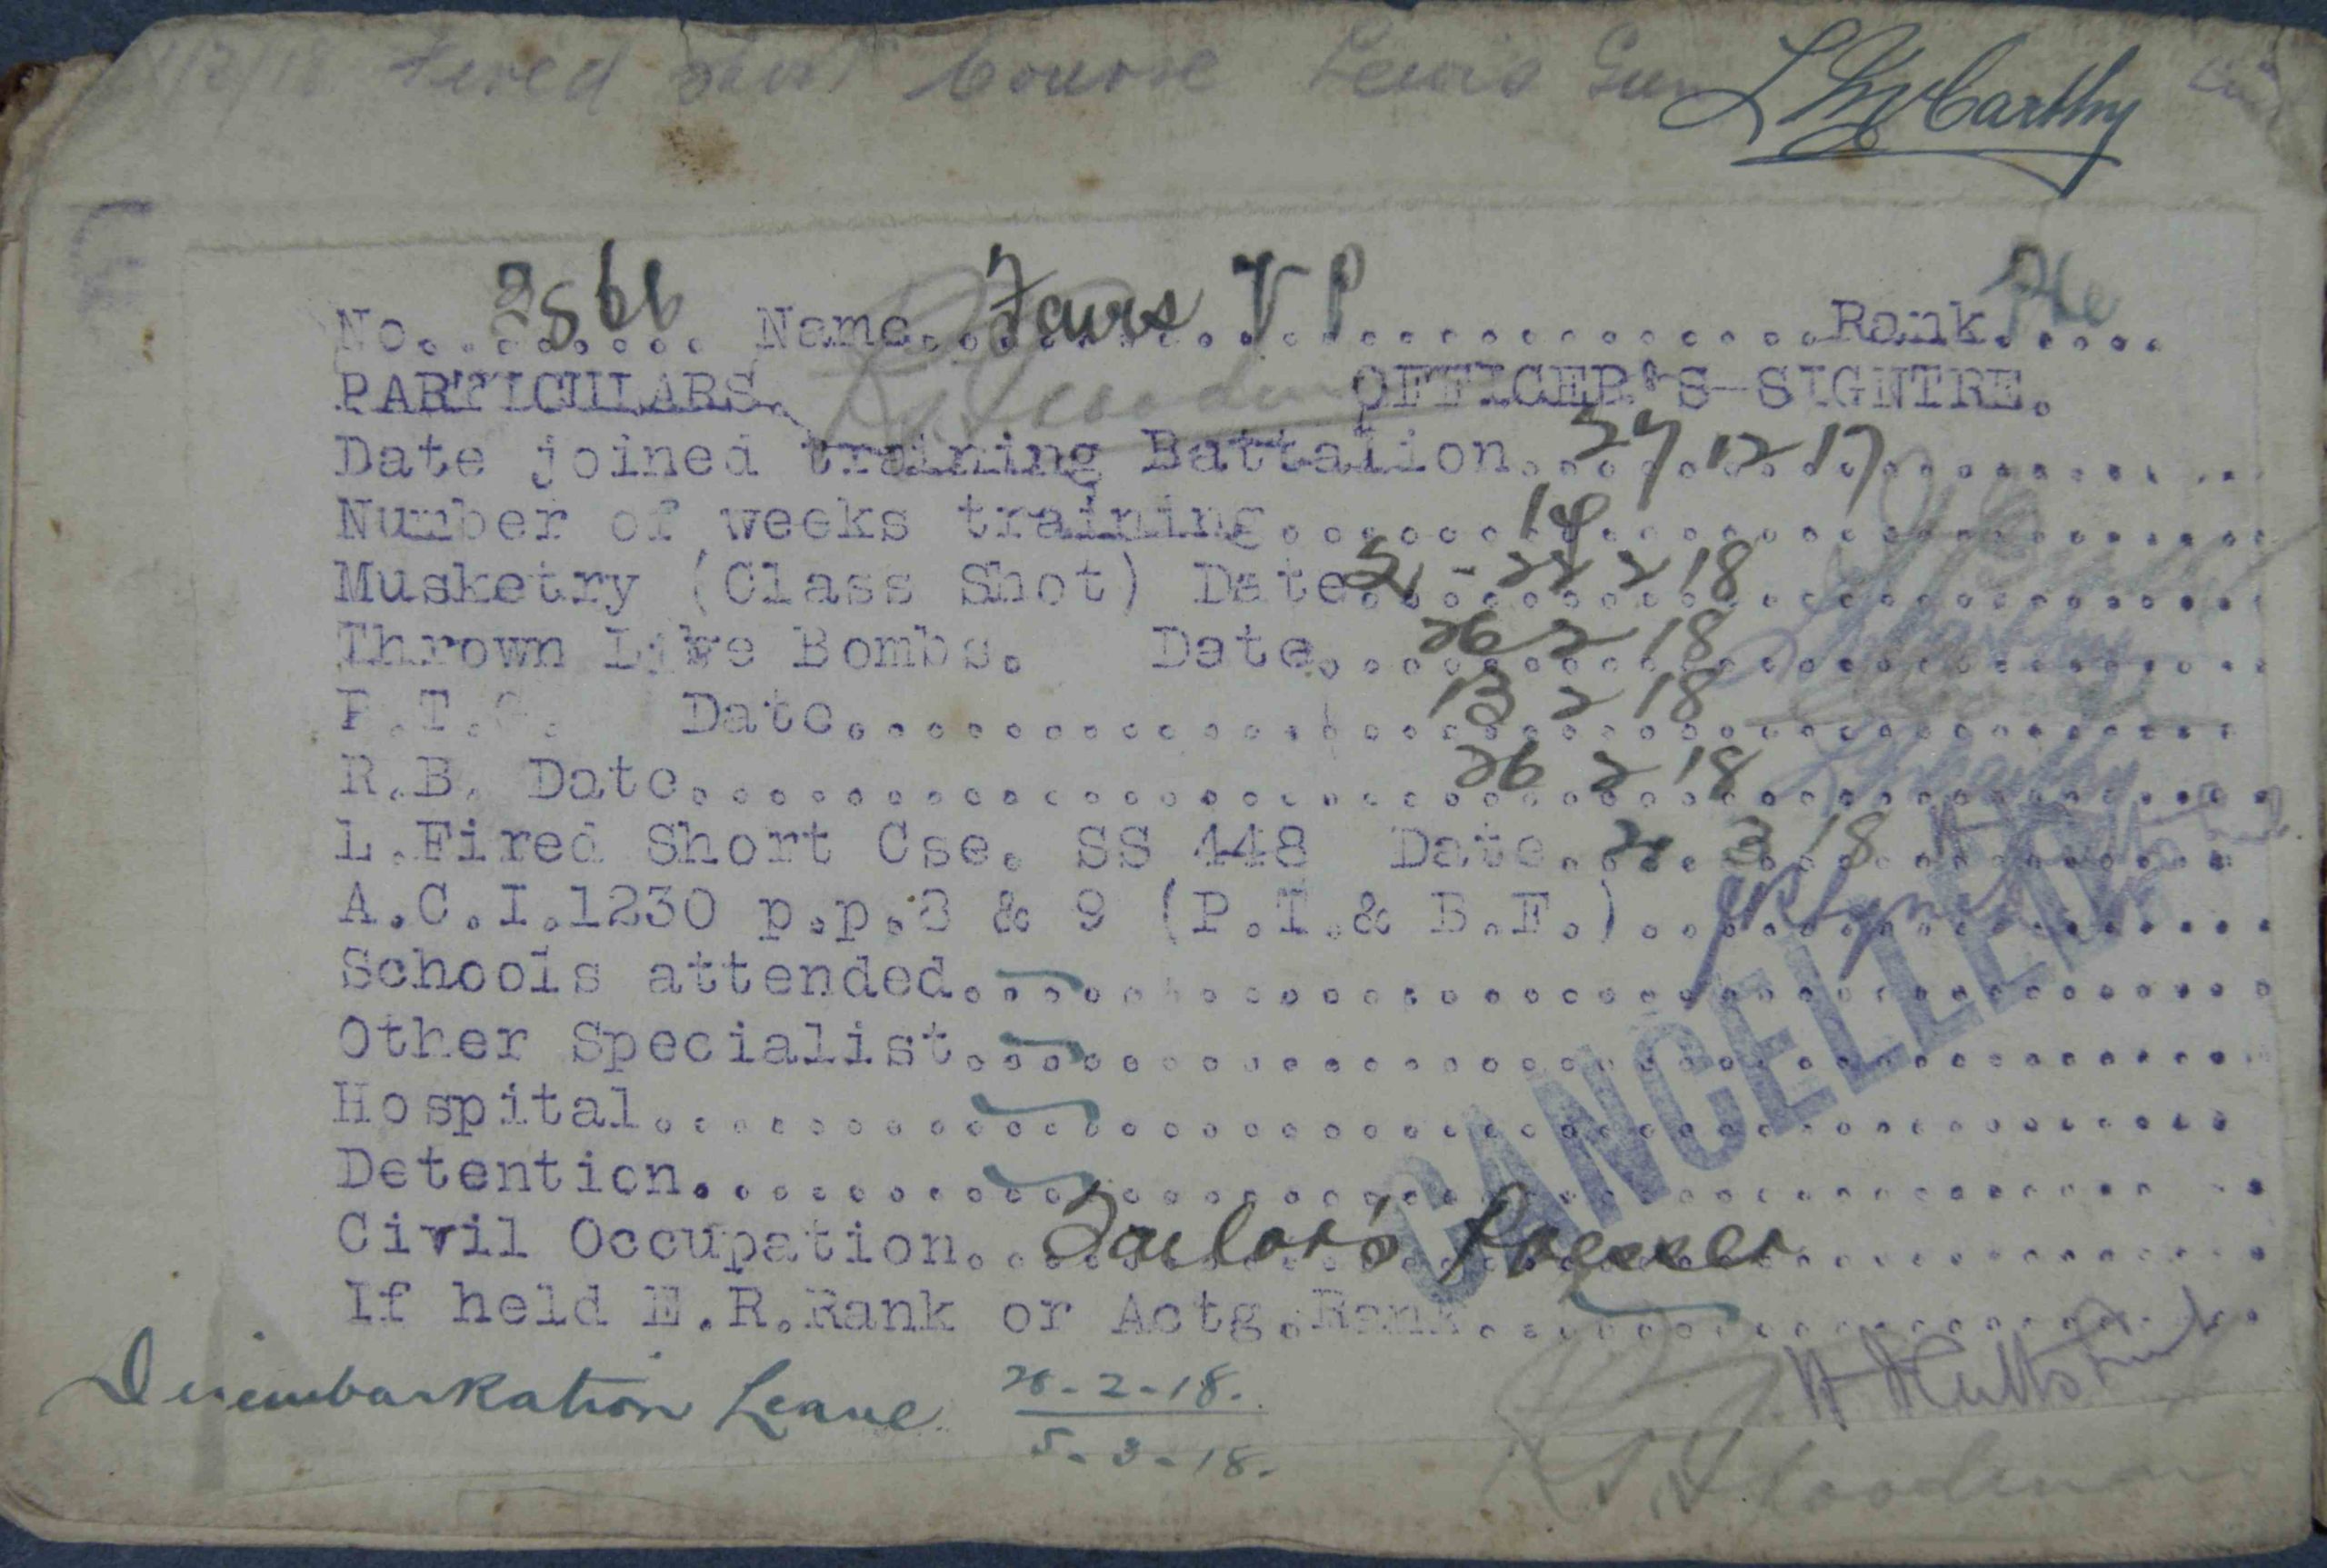 Fired Short Course Lewis Gun L McCarthy
No. 2866 Name Faurs V P Rank Pte
PARTICULARS. OFFICER'S SIGNTRE.
Date joined training Battalion 27 12 17
Number of weeks training 14
Musketry (Class Shot) Date 21 - 22 2 18
Thrown Live Bombs. Date 26 2 18
Date 13 2 18
R.B. Date 26 2 18
L.Fired Short Cse. SS 448 Date 3 18
A.C.I.1230 p.p.8 & 9 (P.T.& B.F.)
Schools attended
Other Specialist
Hospital
Detention
CANCELLED
Civil Occupation Tailor's Presser
If held E.R.Rank or Actg.Rank
Disembarkation Leave 28-2-18.
5-3-18.